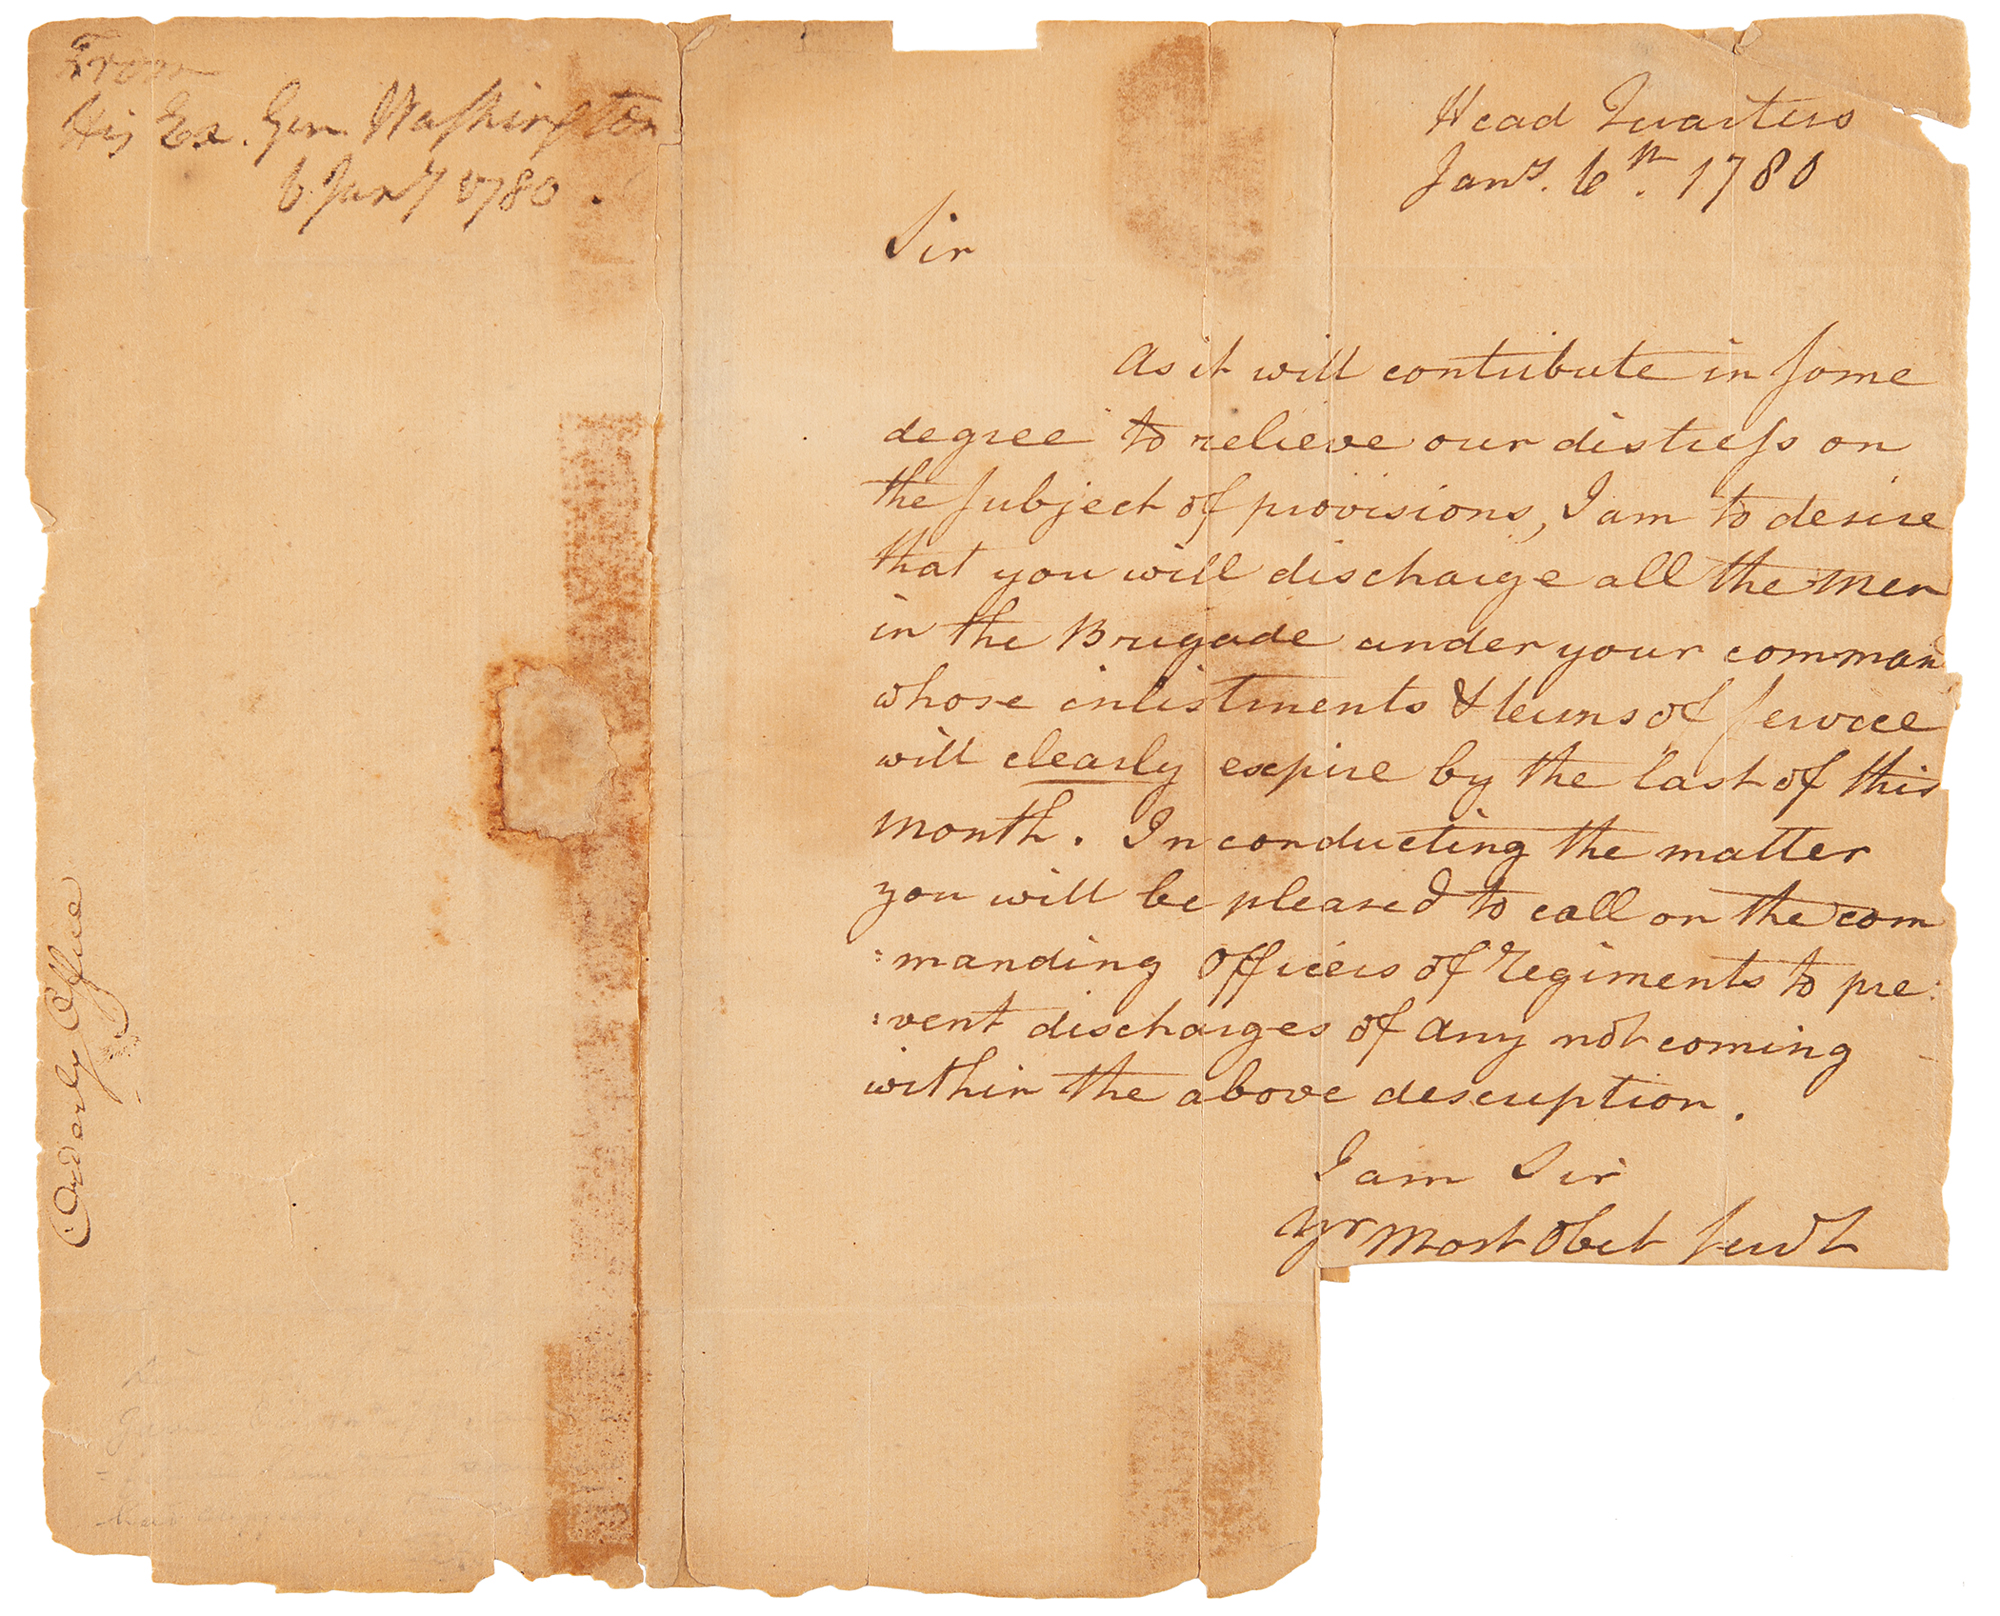 From
His Ex. Gen. Washington
6 Jany 1780.
Orderly Office
Head Quarters
Jany. 6th. 1780
Sir
As it will contribute in some
degree to relieve our distress on
the subject of provisions, I am to desire
that you will discharge all the men
in the Brigade under your comman
whose inlistments & terms of service
will clearly expire by the last of this
month. In conducting the matter
you will be pleased to call on the com
:manding Officers of regiments to pre:
:vent discharges of any not coming
within the above description.
I am Sir
Yr most obet servt